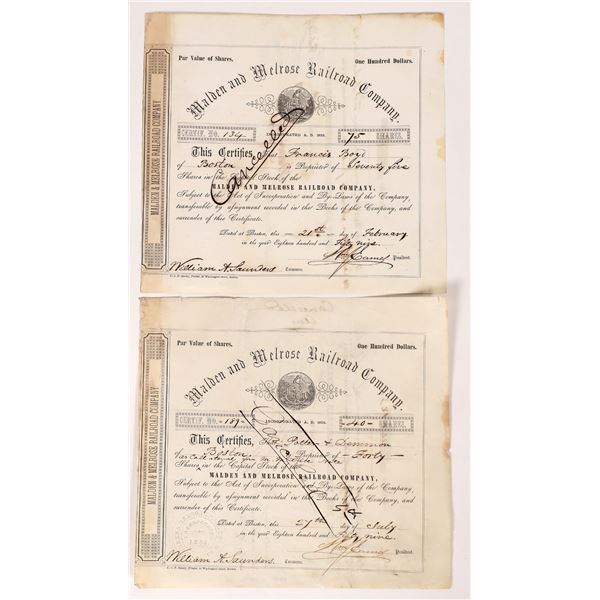 Par Value of Shares. One Hundred Dollars.
Malden and Melrose Railroad Company.
MALDEN & MELROSE RAILROAD COMPANY
CERTIF. NO. 134 INCORPORATED A. D. 75 SHARES.
Cancelled
This Certifies, that Francis
of Boston is Proprietor of Seventy five
Shares in the Stock of the
MALDEN AND MELROSE RAILROAD COMPANY,
Subject to the Act of Incorporation and By-Laws of the Company,
transferable by assignment recorded in the Books of the Company, and
surrender of this Certificate.
Dated at Boston, this 21st day of February
in the year Eighteen hundred and Fifty nine.
President.
William A. Saunders Treasurer.
Par Value of Shares. One Hundred Dollars.
Malden and Melrose Railroad Company.
MALDEN & MELROSE RAILROAD COMPANY
CERTIF. NO. 189 INCORPORATED A. D. 40 SHARES.
This Certifies, Potter & Demmon
Boston Proprietor of Forty
Shares in the Capital Stock of the
MALDEN AND MELROSE RAILROAD COMPANY,
Subject to the Act of Incorporation and By-Laws of the Company,
transferable by assignment recorded in the Books of the Company, and
surrender of this Certificate.
Dated at Boston, this 27th day of July
in the year Eighteen hundred and Fifty nine
President.
William A. Saunders. Treasurer.